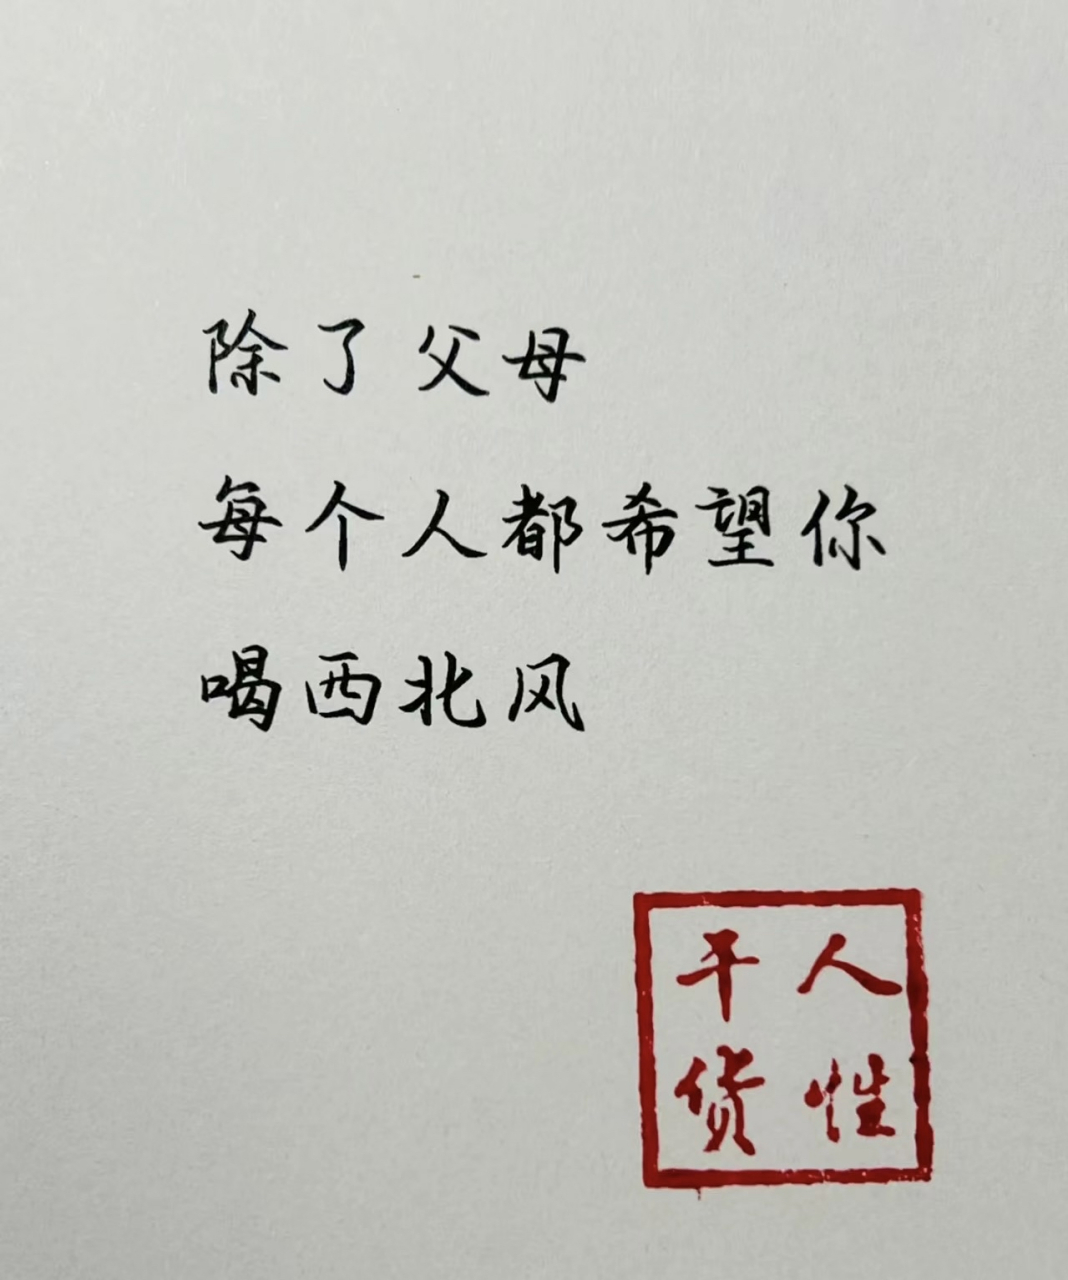 除了父母
每个人都希望你
喝西北风
人性
干货